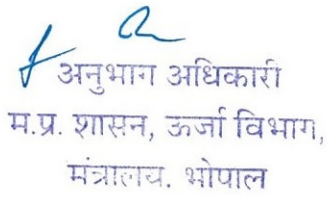 अनुभाग अधिकारी
म.प्र. शासन, ऊर्जा विभाग,
मंत्रालय. भोपाल